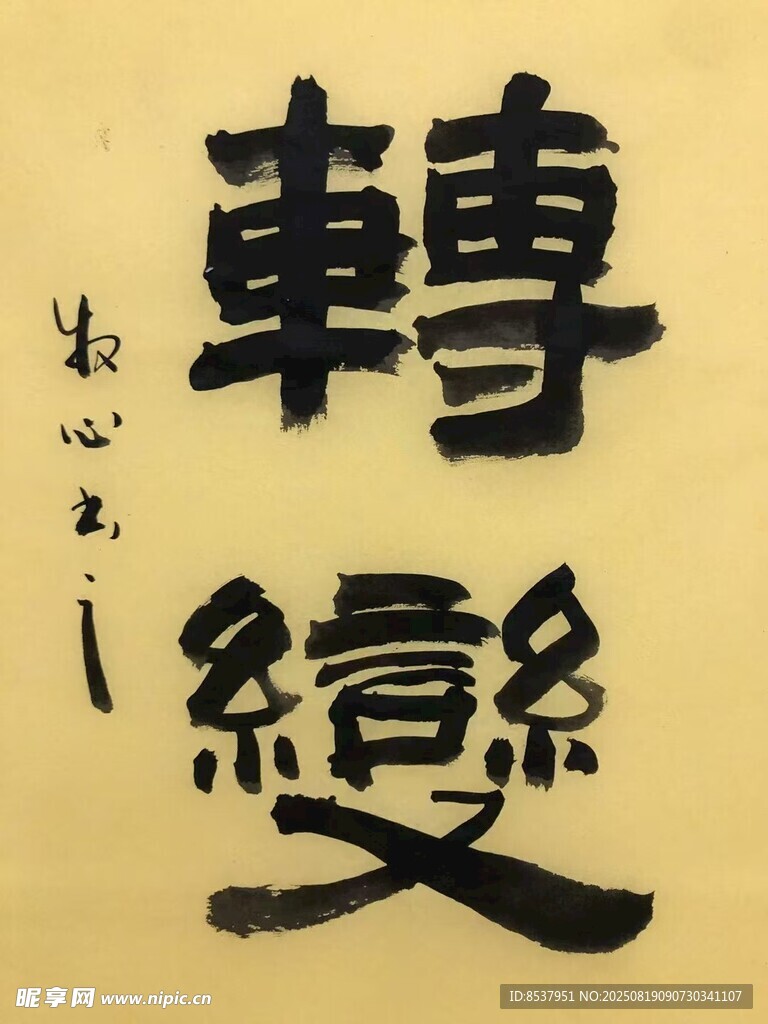 轉
變
牧心書
昵享网 www.nipic.cn
ID:8537951 NO:20250819090730341107